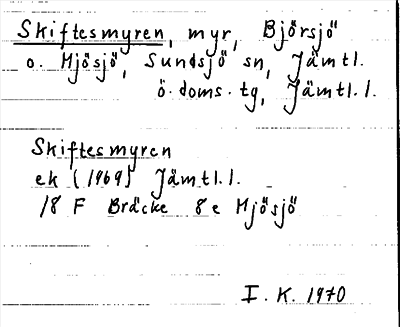 Skiftesmyren, myr, Björsjö
o. Mjösjö, Sundsjö sn, Jämtl.
ö. doms. tg, Jämtl. l.
Skiftesmyren
ek (1969) Jämtl. l.
18 F Bräcke 8e Mjösjö
I. K. 1970